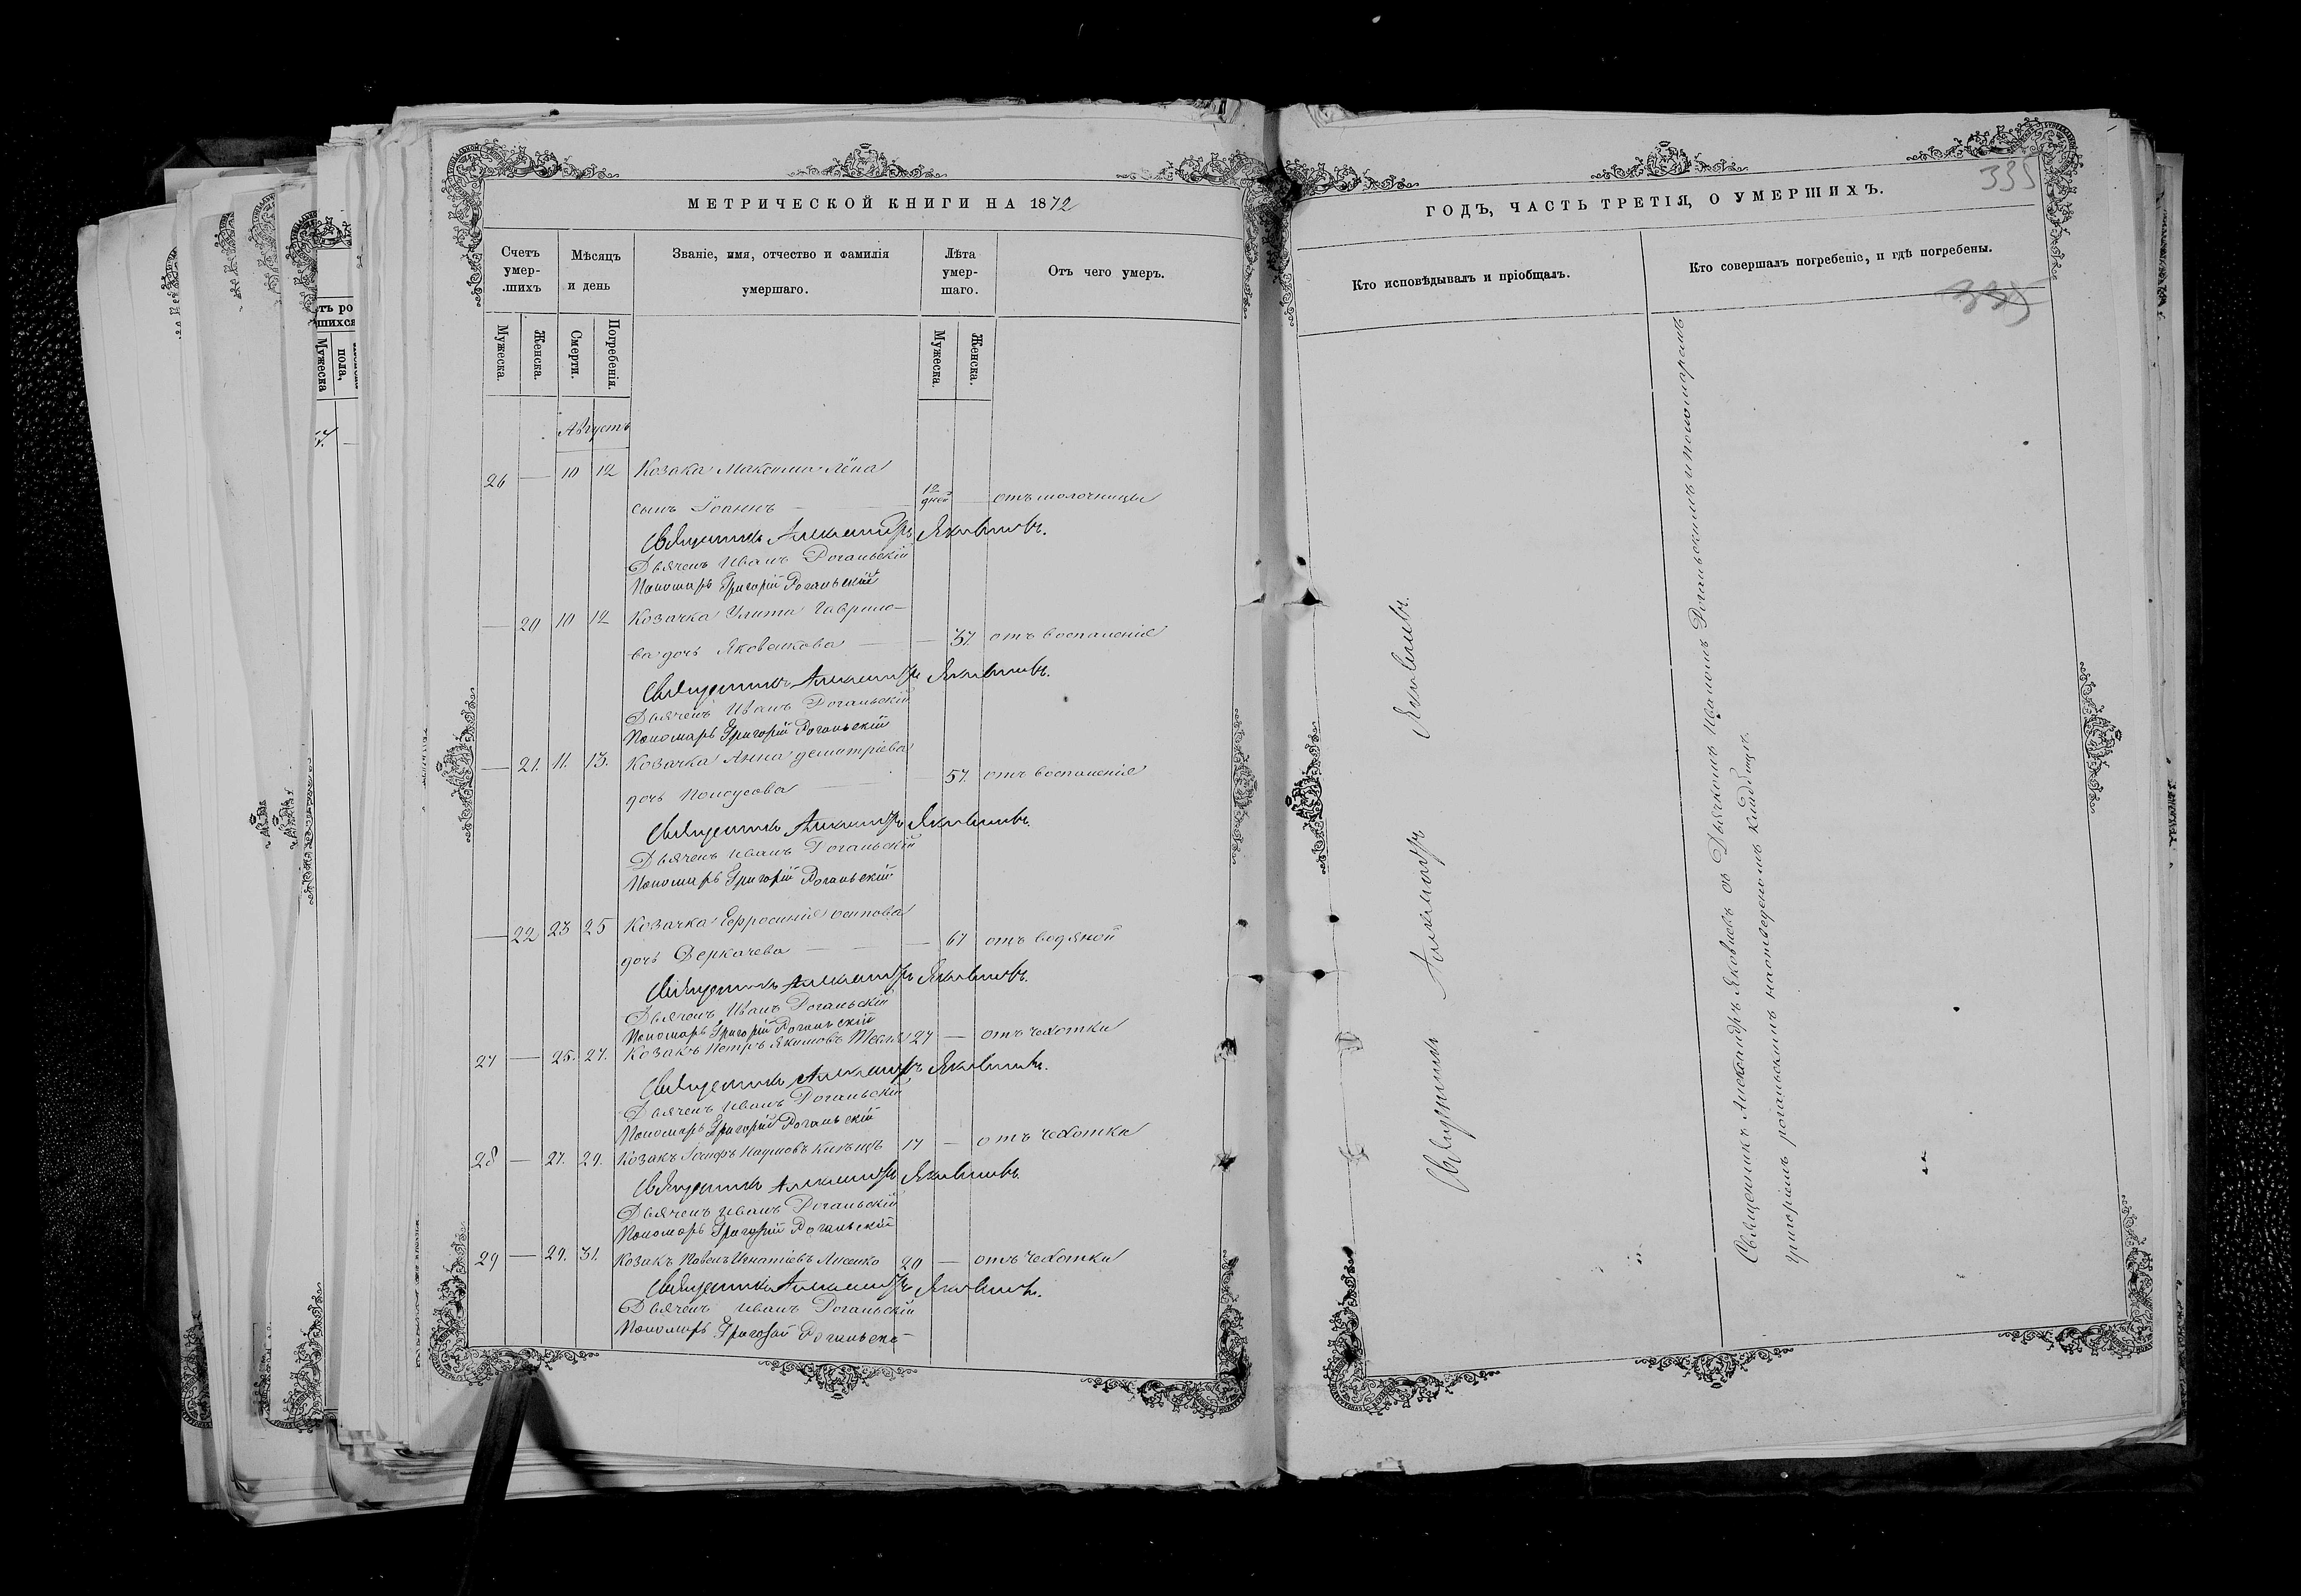 МЕТРИЧЕСКОЙ КНИГИ НА 1872
Счетъ умер-.шихъ
Мѣсяцъ и день
Званіе, имя, отчество и фамилія умершаго.
Лѣта умер-шаго.
Отъ чего умеръ.
Мужеска.
Женска.
Смерти.
Погребенія.
Мужеска.
Женска.
Августъ
26 — 10 12 Козака Максима
сынъ Іоаннъ — 12 дней — отъ молочницы
Священникъ Александръ Яковлевъ.
Дьячекъ Иванъ Рогальскій
Пономарь Григорій Рогальскій
— 20 10 12 Козачка Улита Гаврило-
ва дочь Яковенкова — — 37. отъ воспаленія
Священникъ Александръ Яковлевъ.
Дьячекъ Иванъ Рогальскій
Пономарь Григорій Рогальскій
— 21. 11. 13. Козачка Анна Деметріева
дочь Поноусова — 57. отъ воспаленія
Священникъ Александръ Яковлевъ.
Дьячекъ Иванъ Рогальскій
Пономарь Григорій Рогальскій
— 22 23 25 Козачка Ефросинія Осипова
дочь Деркачева — — — 67 отъ водяной
Священникъ Александръ Яковлевъ.
Дьячекъ Иванъ Рогальскій
Пономарь Григорій Рогальскій
27 — 25. 27. Козакъ Петръ Якимовъ 27 — отъ чахотки
Священникъ Александръ Яковлевъ.
Дьячекъ Иванъ Рогальскій
Пономарь Григорій Рогальскій
28 — 27. 29. Козакъ Іосифъ Наумовъ 17 — отъ чахотки
Священникъ Александръ Яковлевъ.
Дьячекъ Иванъ Рогальскій
Пономарь Григорій Рогальскій
29 — 29. 31. Козакъ Павелъ Игнатіевъ Лисенко 20 — отъ чахотки
Священникъ Александръ Яковлевъ.
Дьячекъ Иванъ Рогальскій
Пономарь Григорій Рогальскі
ГОДЪ, ЧАСТЬ ТРЕТІЯ, О УМЕРШИХЪ.
335
Кто исповѣдывалъ и пріобщалъ.
Кто совершалъ погребеніе, и гдѣ погребены.
335
Священникъ Александръ Яковлевъ.
Священникъ Александръ Яковлевъ съ Дьячкомъ Иваномъ Рогальскимъ и пономаремъ
Григоріемъ Рогальскимъ на отведеномъ кладбищѣ.